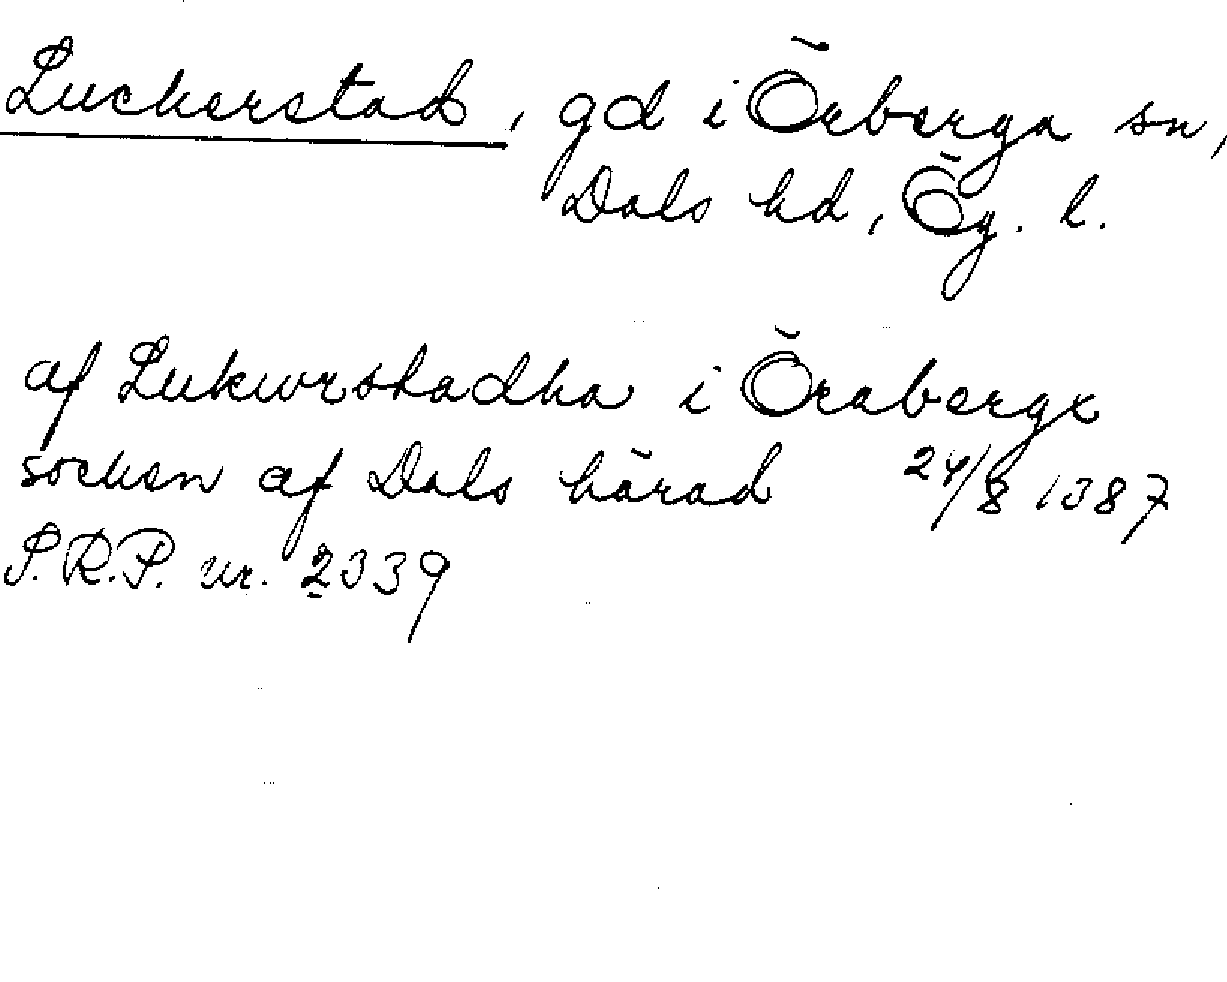 Luckerstad, gd i Örberga sn,
Dals hd, Ög. l.
af Lukurstadha i Örabergx
socken af Dals härad 24/8 1387
S.R.P. nr. 2339